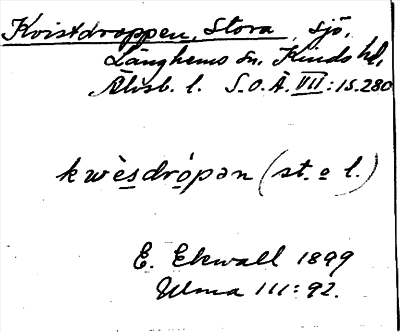 Kvistdroppen, Stora, sjö,
Länghems sn, Kinds hd,
Älvsb. l. S.O.Ä. VII: 15.280
kwèsdrópən (st. o l.)
E. Ekwall 1899
Ulma 111: 92.